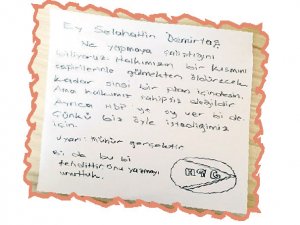 Ey Selahattin Demirtaş
Ne yapmaya çalıştığını
biliyoruz. Halkımızın bir kısmını
gömekten öldürecek
kadar sinsi bir plan içindesin.
Ama halkımız sahipsiz değildir
Ayrıca HDP ye oy ver bi de.
Çünkü biz öyle istediğimiz
için.
uyarı: mühür gerçektir
e: de bu bi
tehdittir onu yazmayı
unuttuk.